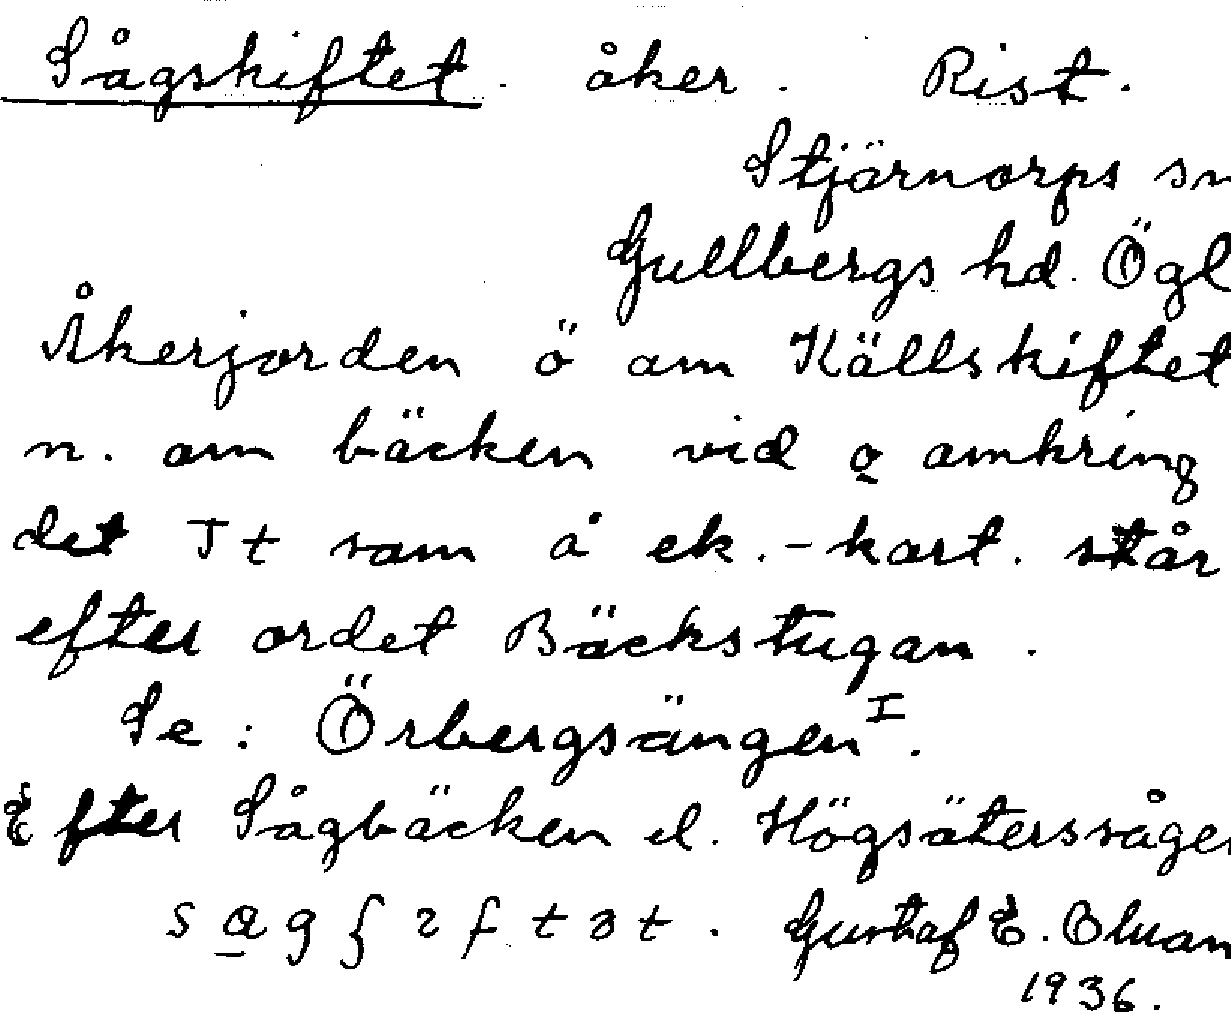 Sågskiftet. åker. Rist.
Stjärnorps sn
Gullbergs hd. Ögl
Åkerjorden ö om Källskiftet
n. om bäcken vid o omkring
det Tt som å ek.-kart. står
efter ordet Bäckstugan.
Se: Örbergsängen I.
Efter Sågbäcken el. Högsäterssågen
Gustaf E.
1936.